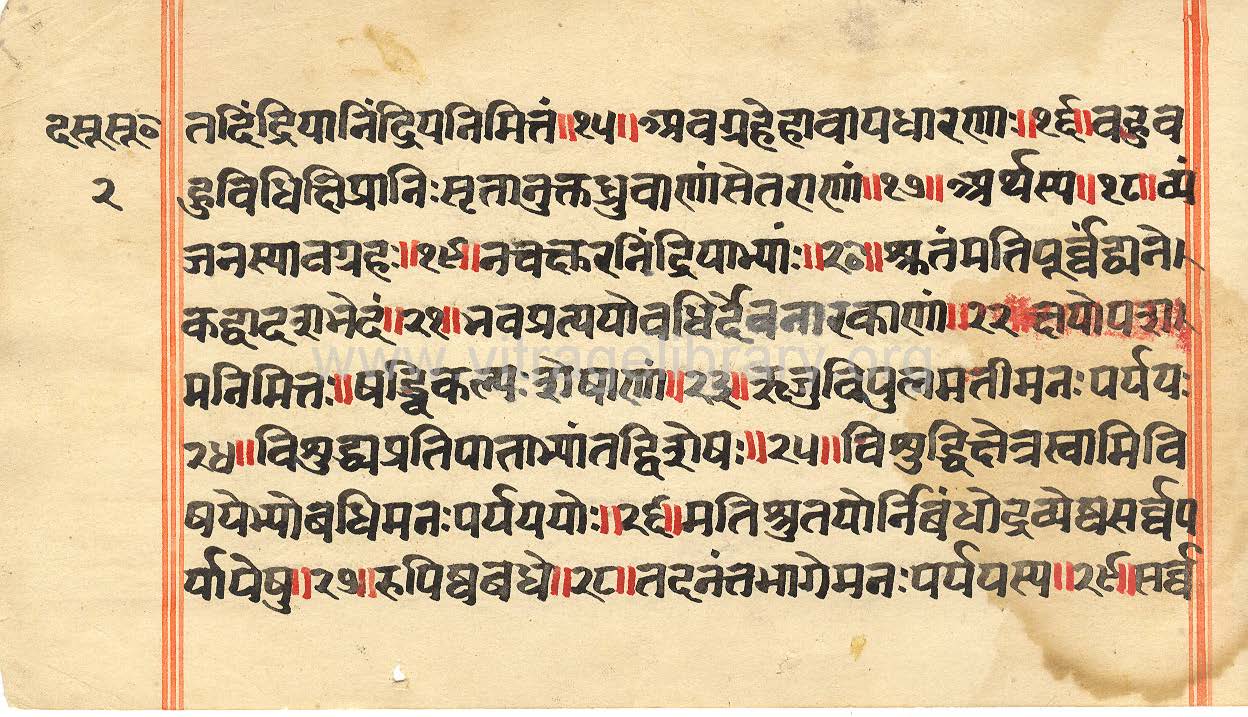 दसूसू०
२
तदिंद्रियानिंद्रियनिमित्तं॥१५॥अवग्रहेहावायधारणाः॥१६॥वहुव
हुविधिक्षिप्रानिःसृतानुक्तध्रुवाणांसेतराणां॥१७॥अर्थस्य॥१८॥व्यं
जनस्यावग्रहः॥१९॥नचक्षुरनिंद्रियाभ्यांः॥२०॥श्रुतंमतिपूर्व्वंद्व्यने।
कद्वादशभेदं॥२१॥भवप्रत्ययोवधिर्देवनारकाणां॥२२॥क्षयोपशा।
मनिमित्तः॥षड्विकल्पःशेषाणां॥२३॥रुजुविपुलमतीमनःपर्ययः
२४॥विशुद्ध्यप्रतिपाताभ्यांतद्विशेषः॥२५॥विशुद्धिक्षेत्रस्वामिवि
षयेभ्योबधिमनःपर्यययोः॥२६॥मतिश्रुतयोर्निबंधोद्रव्येष्वसर्व्वप
र्यायेषु॥२७॥रुपिष्वबधे॥२८॥तदनंतभागेमनःपर्ययस्य॥२९॥सर्व्व
www.vitragelibrary.org